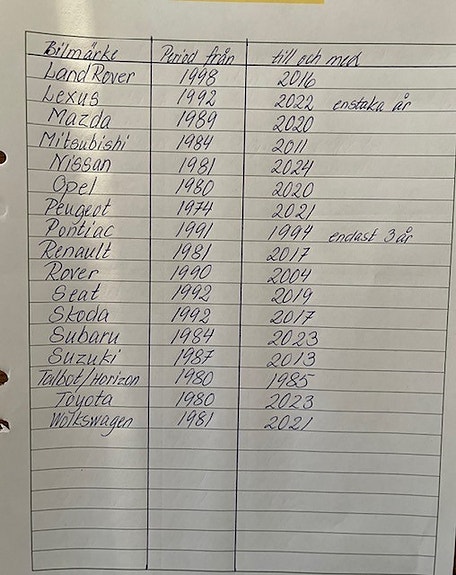 Bilmärke Period från till och med
Land Rover 1998 2016
Lexus 1992 2022 enstaka år
Mazda 1989 2020
Mitsubishi 1984 2011
Nissan 1981 2024
Opel 1980 2020
Peugeot 1974 2021
Pontiac 1991 1994 endast 3 år
Renault 1981 2017
Rover 1990 2004
Seat 1992 2019
Skoda 1992 2017
Subaru 1984 2023
Suzuki 1987 2013
Talbot/Horizon 1980 1985
Toyota 1980 2023
Wolkswagen 1981 2021